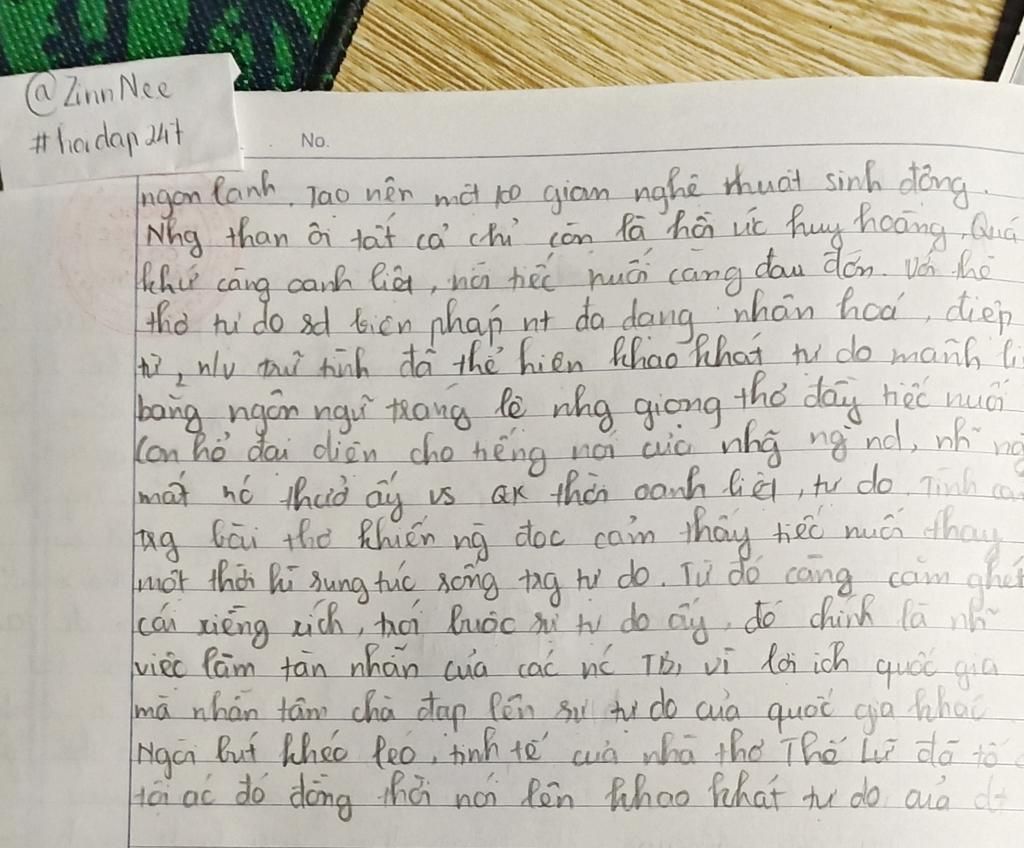 @ZinnNee
#hoidap247
No.
ngon lành. Tạo nên một ko gian nghệ thuật sinh động.
Nhg than ôi tất cả chỉ còn là hồi ức huy hoàng. Quá
khứ càng oanh liệt, nỗi tiếc nuối càng đau đớn. Với thể
thơ tự do sd biện pháp nt đa dạng nhân hoá, điệp
từ, n/v trữ tình đã thể hiện khao khát tự do mãnh li
bằng ngôn ngữ tráng lệ nhg giọng thơ đầy tiếc nuối
Con hổ đại diện cho tiếng nói của nhg ng nd, nh ng
mất nc thuở ấy vs QK thời oanh liệt, tự do. Tình
trg bài thơ khiến ng đọc cảm thấy tiếc nuối thay
một thời kì sung túc sống trg tự do. Từ đó càng căm ghét
cái xiềng xích, trói buộc sự tự do ấy, đó chính là nh
việc làm tàn nhẫn của các nc TB, vì lợi ích quốc gia
mà nhẫn tâm chà đạp lên sự tự do của quốc gia khác
Ngòi bút khéo léo, tinh tế của nhà thơ Thế Lữ đã tố
tội ác đó đồng thời nói lên khao khát tự do của